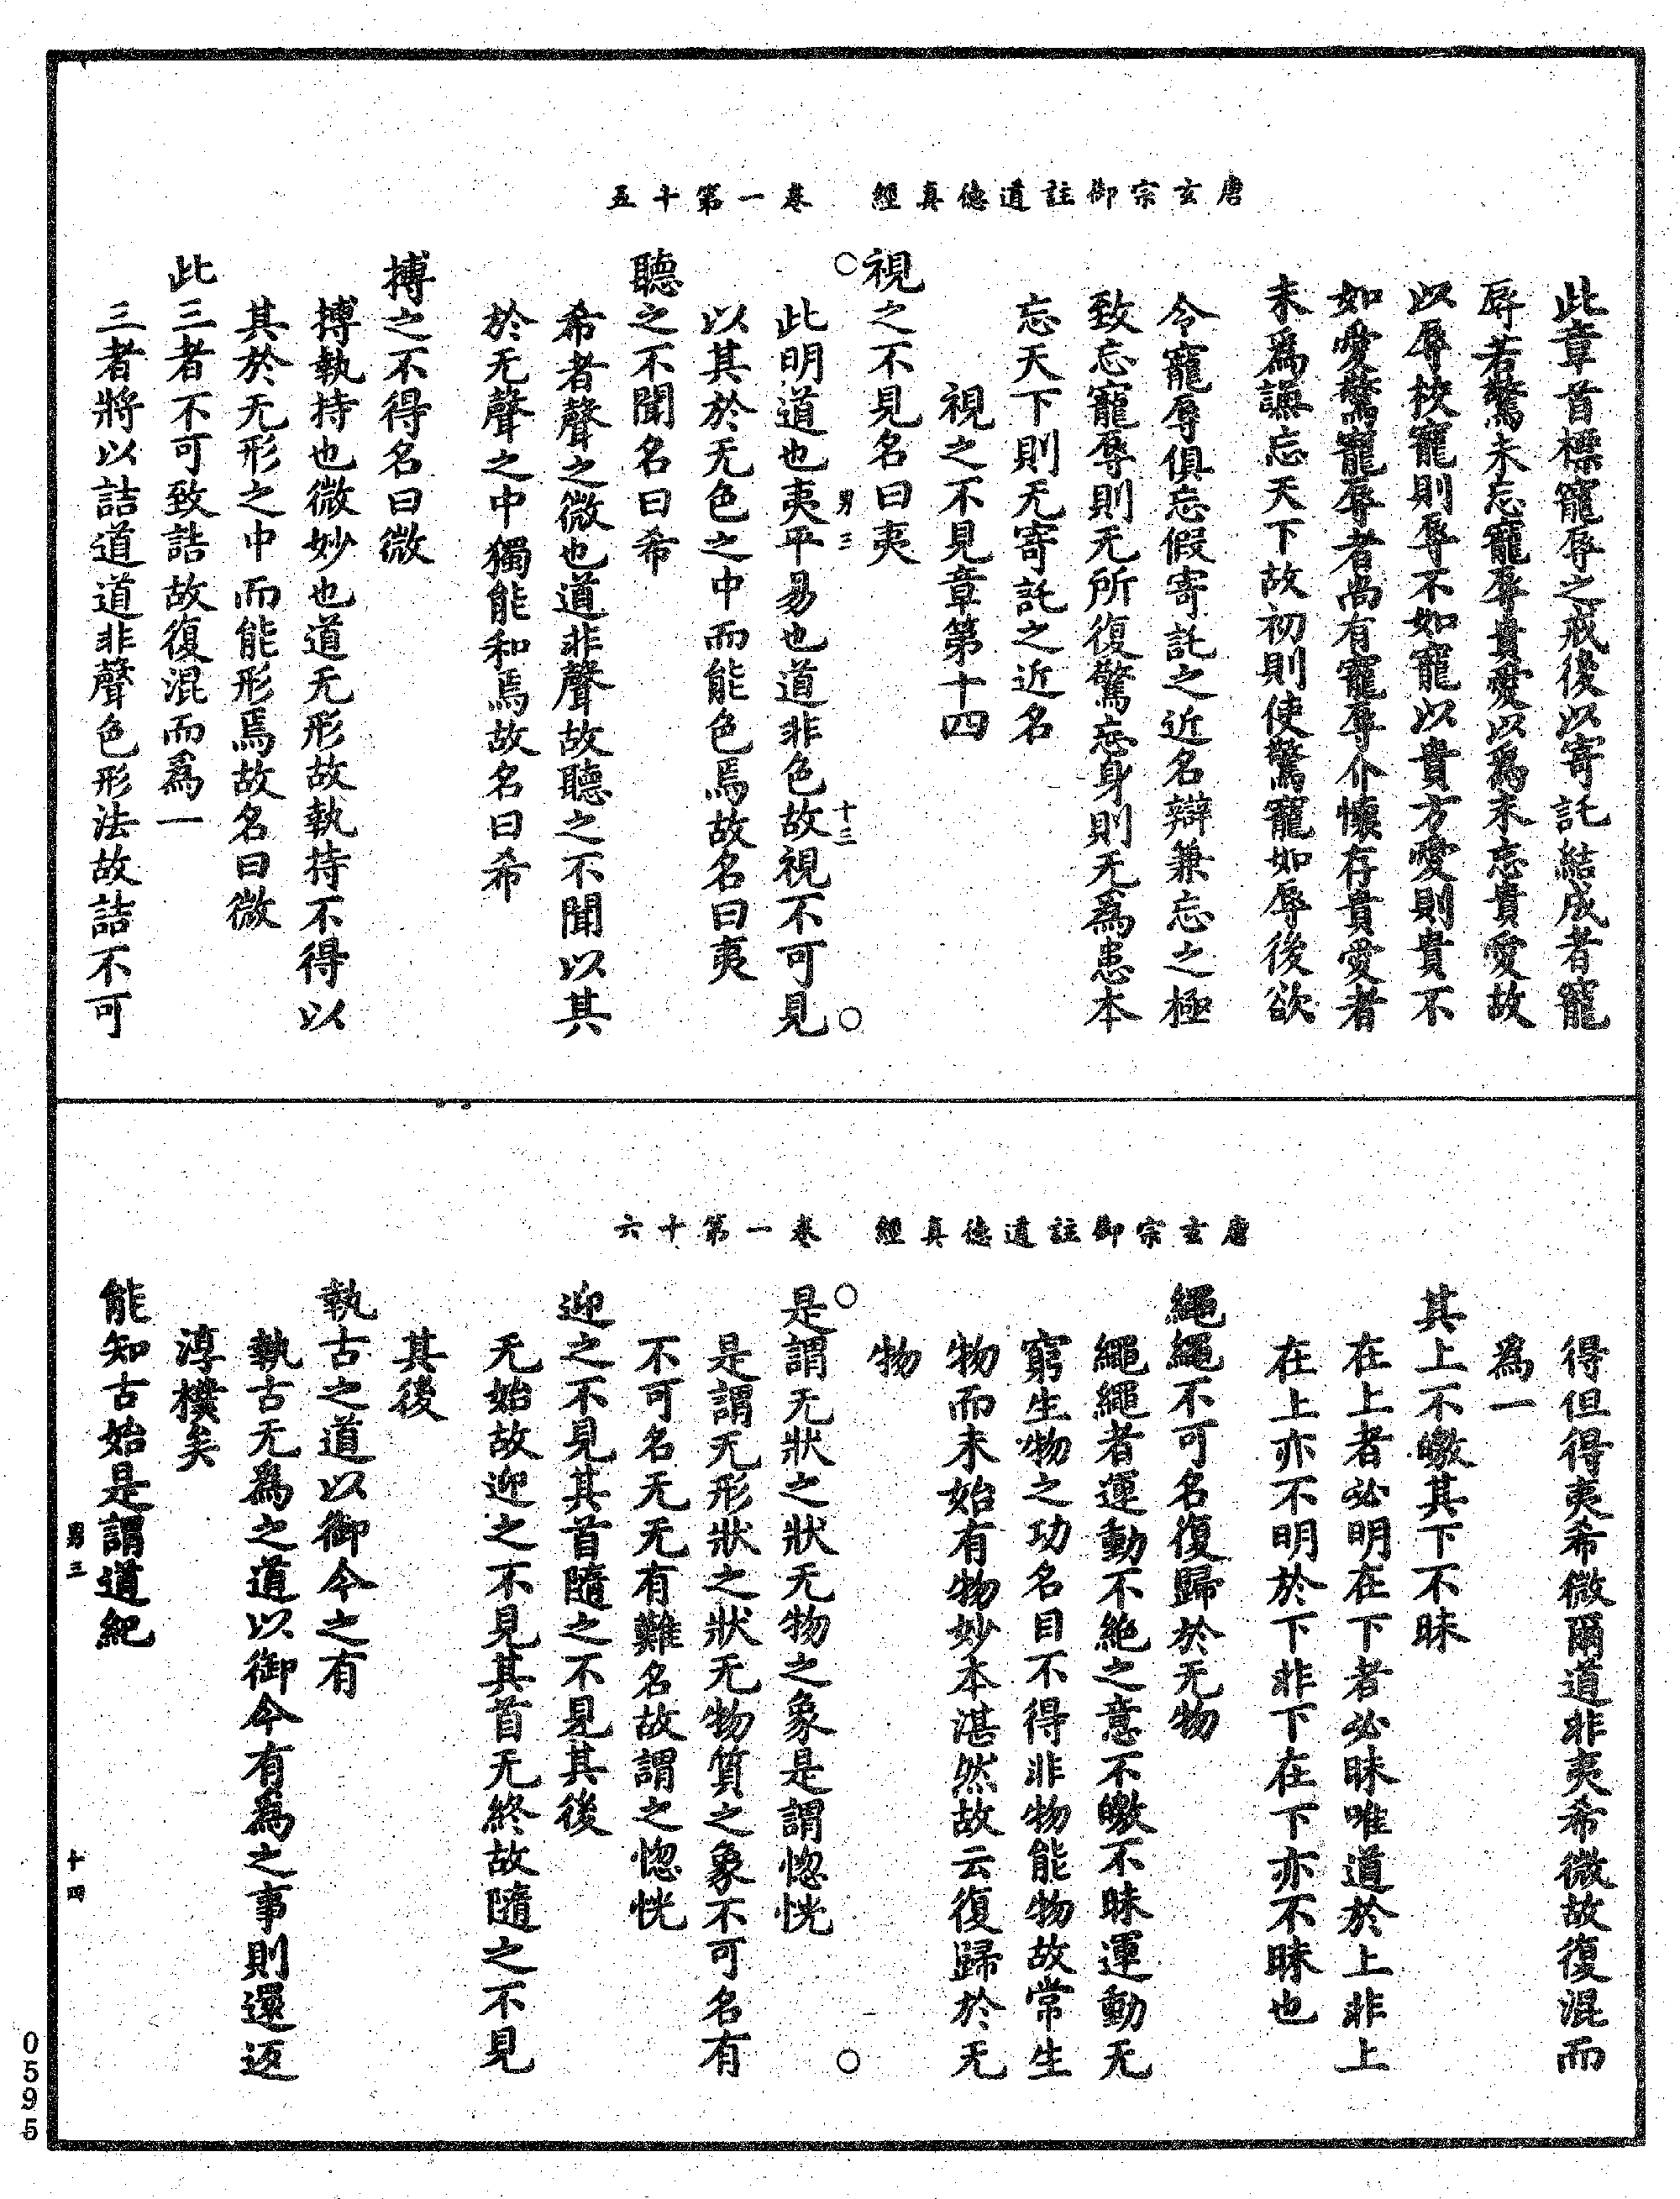 唐玄宗御註道德真經　卷一第十五
此章首標寵辱之戒後以寄託結成者寵
辱若驚未忘寵辱貴愛以爲未忘貴愛故
以辱校寵則辱不如寵以貴方愛則貴不
如愛驚寵辱者尚有寵辱介懷存貴愛者
未爲謙忘天下故初則使驚寵如辱後欲
令寵辱俱忘假寄託之近名辯兼忘之極
致忘寵辱則无所復驚忘身則无爲患本
忘天下則无寄託之近名
視之不見章第十四
視之不見名曰夷
男三　十三
此明道也夷平易也道非色故視不可見
以其於无色之中而能色焉故名曰夷
聽之不聞名曰希
希者聲之微也道非聲故聽之不聞以其
於无聲之中獨能和焉故名曰希
搏之不得名曰微
搏執持也微妙也道无形故執持不得以
其於无形之中而能形焉故名曰微
此三者不可致詰故復混而爲一
三者將以詰道道非聲色形法故詰不可
唐玄宗御註道德真經　卷一第十六
得但得夷希微爾道非夷希微故復混而
爲一
其上不皦其下不昧
在上者必明在下者必昧唯道於上非上
在上亦不明於下非下在下亦不昧也
繩繩不可名復歸於无物
繩繩者運動不絶之意不皦不昧運動无
窮生物之功名目不得非物能物故常生
物而未始有物妙本湛然故云復歸於无
物
是謂无狀之狀无物之象是謂惚恍
是謂无形狀之狀无物質之象不可名有
不可名无无有難名故謂之惚恍
迎之不見其首隨之不見其後
无始故迎之不見其首无終故隨之不見
其後
執古之道以御今之有
執古无爲之道以御今有爲之事則還返
淳樸矣
能知古始是謂道紀
男三　十四
0595